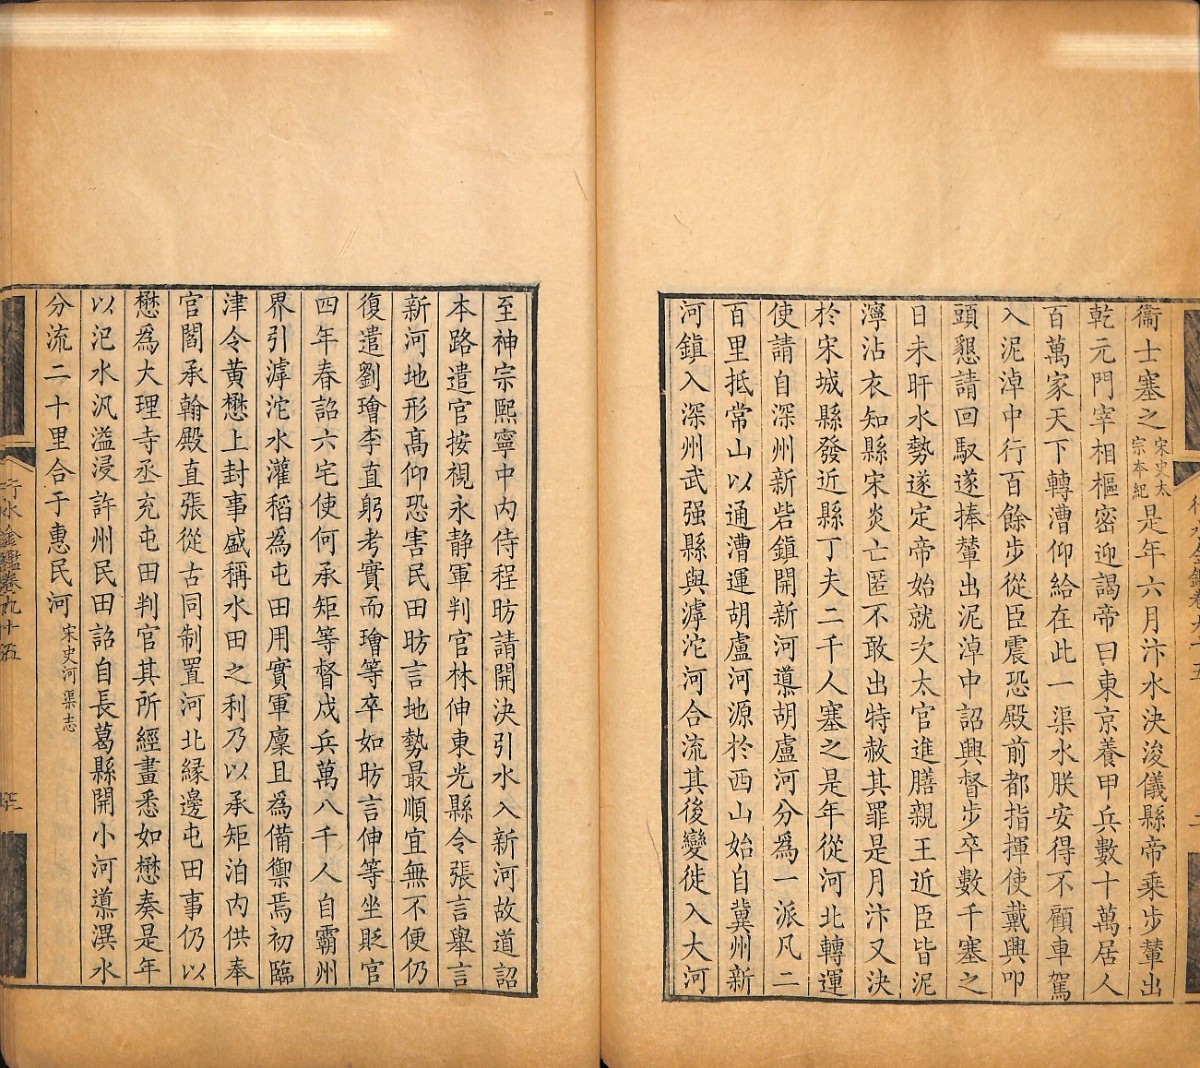 衞士塞之宋史太宗本紀是年六月汴水決浚儀縣帝乘步輦出
乾元門宰相樞密迎謁帝曰東京養甲兵數十萬居人
百萬家天下轉漕仰給在此一渠水朕安得不顧車駕
入泥淖中行百餘步從臣震恐殿前都指揮使戴興叩
頭懇請回馭遂捧輦出泥淖中詔興督步卒數千塞之
日未旰水勢遂定帝始就次太官進膳親王近臣皆泥
濘沾衣知縣宋炎亡匿不敢出特赦其罪是月汴又決
於宋城縣發近縣丁夫二千人塞之是年從河北轉運
使請自深州新砦鎮開新河導胡盧河分爲一派凡二
百里抵常山以通漕運胡盧河源於西山始自冀州新
河鎮入深州武强縣與滹沱河合流其後變徙入大河
至神宗熙寧中內侍程昉請開決引水入新河故道詔
本路遣官按視永静軍判官林伸東光縣令張言舉言
新河地形高仰恐害民田昉言地勢最順宜無不便仍
復遣劉璯李直躬考實而璯等卒如昉言伸等坐貶官
四年春詔六宅使何承矩等督戍兵萬八千人自霸州
界引滹沱水灌稻爲屯田用實軍廩且爲備禦焉初臨
津令黃懋上封事盛稱水田之利乃以承矩洎內供奉
官閻承翰殿直張從古同制置河北緣邊屯田事仍以
懋爲大理寺丞充屯田判官其所經畫悉如懋奏是年
以汜水汎溢浸許州民田詔自長葛縣開小河導潩水
分流二十里合于惠民河宋史河渠志
行水金鑑卷九十五